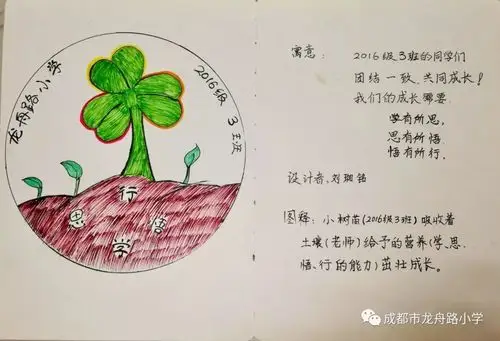 龙舟路小学
2016级 3班
行
思 悟
学
寓意: 2016级3班的同学们
团结一致、共同成长!
我们的成长需要
学有所思,
思有所悟,
悟有所行.
设计者:刘珈铭
图释: 小树苗(2016级3班)吸收着
土壤(老师)给予的营养(学、思、
悟、行的能力)茁壮成长。
成都市龙舟路小学